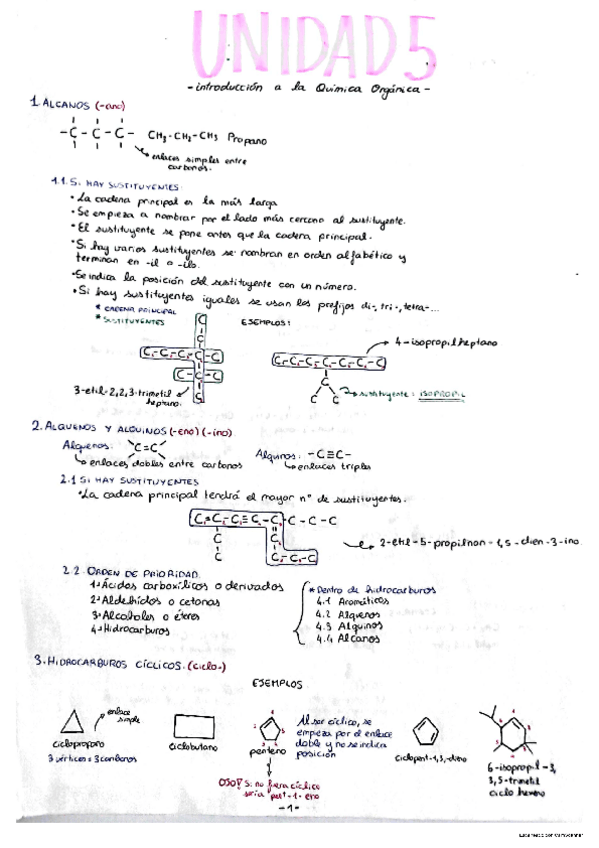 UNIDAD 5
-introducción a la Química Orgánica-
1. ALCANOS (-ano)
-C-C-C- CH3-CH2-CH3 Propano
enlaces simples entre
carbonos.
1.1. Si HAY SUSTITUYENTES
• La cadena principal es la más larga
• Se empieza a nombrar por el lado más cercano al sustituyente.
• El sustituyente se pone antes que la cadena principal.
• Si hay varios sustituyentes se nombran en orden alfabético y
terminan en -il o -ilo.
• Se indica la posición del sustituyente con un número.
• Si hay sustituyentes iguales se usan los prefijos di-, tri-, tetra-...
* CADENA PRINCIPAL
* SUSTITUYENTES
EJEMPLOS:
4-isopropilheptano
sustituyente: ISOPROPIL
3-etil-2,2,3-trimetil
heptano.
2. ALQUENOS Y ALQUINOS (-eno) (-ino)
Alquenos: C=C
enlaces dobles entre carbonos
Alquinos: -C≡C-
enlaces triples
2.1 SI HAY SUSTITUYENTES
• La cadena principal tendrá el mayor nº de sustituyentes.
C=C-C≡C-C-C-C-C
2-etil-5-propilnon-1,5-dien-3-ino
2.2. ORDEN DE PRIORIDAD
1º Ácidos carboxílicos o derivados
2º Aldehídos o cetonas
3º Alcoholes o éteres
4º Hidrocarburos
* Dentro de hidrocarburos
4.1 Aromáticos
4.2 Alquenos
4.3 Alquinos
4.4 Alcanos
3. HIDROCARBUROS CÍCLICOS. (ciclo-)
EJEMPLOS
enlace
simple
ciclopropano
3 vértices = 3 carbonos
ciclobutano
penteno
Al ser cíclico, se
empieza por el enlace
doble y no se indica
posición
OJO! Si no fuera cíclico
sería pent-1-eno
ciclopent-1,3-dieno
6-isopropil-3,
3,5-trimetil
ciclo hexeno
-1-